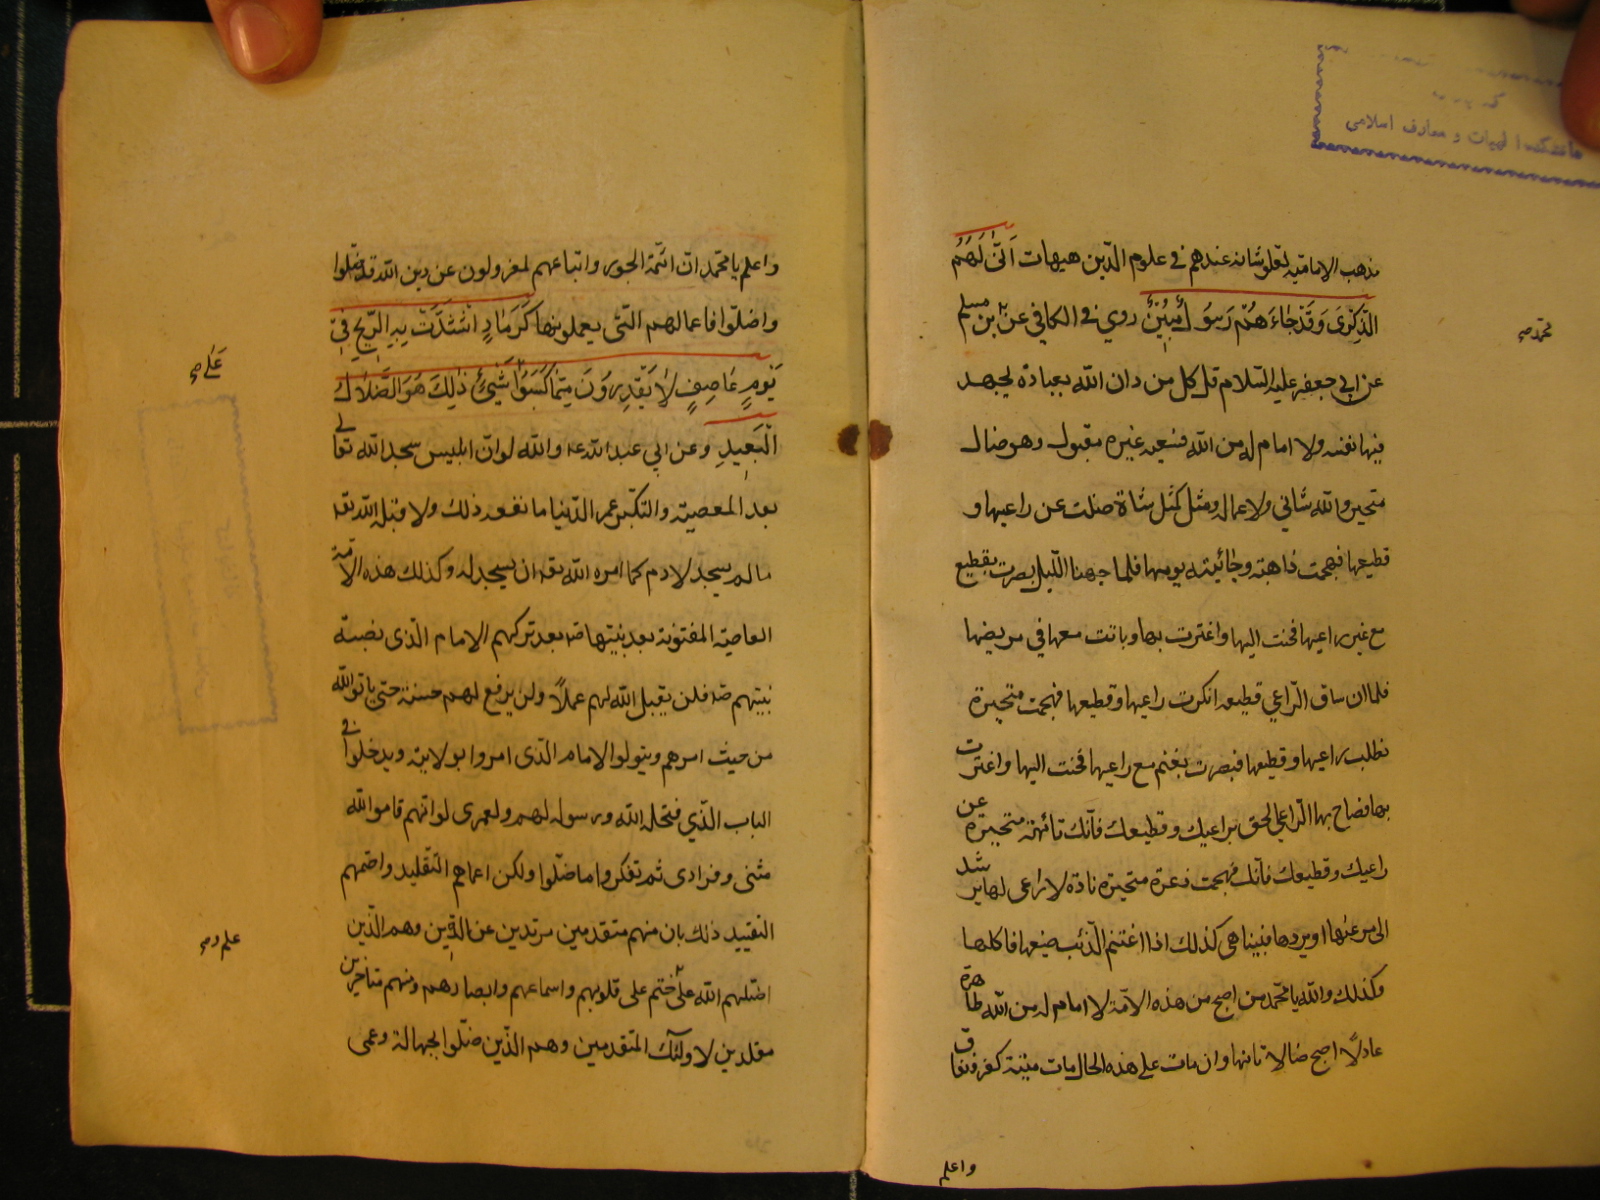 دانشکده الهیات و معارف اسلامی
مذهب الامامیة لعلو شانه عندهم فی علوم الدّین هیهات اَنّیٰ لَهُمُ
الذِّکْرٰی وَقَدْ جٰاءَهُمْ رَسُولٌ مُبِینٌ روی فی الکافی عن محمد بن مسلم
محمد صح
عن ابی جعفر علیه السّلام قال کل من دان اللّه بعبادة یجهد
فیها نفسه ولا امام له من اللّه فسعیه غیره مقبول وهو ضال
متحیر واللّه شانی ولاعماله ومثله کمثل شاة ضلت عن راعیها و
قطیعها فهجمت ذاهبته وجائیته یومها فلما جهنا اللّیل بصرت بقطیع
مع غیر راعیها فحنت الیها واغترت بها وباتت معها فی مربضها
فلما ان ساق الرّاعی قطیعه انکرت راعیها وقطیعها فهجمت متحیرة
تطلب راعیها وقطیعها فبصرت بغنم مع راعیها فحنت الیها واغترت
بها فصاح بها الرّاعی الحق براعیک وقطیعک فانّک تائهة متحیرة عن
راعیک وقطیعک فانّک فهجمت ذعرة متحیرة نادة لا راعی لها یرشد
الی مرعٰیها او یردها فبینا هی کذلک اذا اغتنم الذّئب ضیعها فاکلها
وکذلک واللّه یا محمّد من اصبح من هذه الامّة لا امام له من اللّه طاهرة
عادلًا اصبح ضالا تائها وان مات علی هذه الحال مات میتة کفر ونفاق
واعلم
واعلم یا محمّد انّ ائمّة الجور واتباعهم لمعزولون عن دین اللّه قد ضلّوا
واضلّوا فاعمالهم التّی یعملونها کَرَمٰادٍ اشْتَدَّتْ بِهِ الرِّیحُ فِی
یَوْمٍ عٰاصِفٍ لاٰ یَقْدِرُونَ مِمّٰا کَسَبُوا شَیْئٍ ذٰلِکَ هُوَ الضَّلاٰلُ
علیٰ صح
الْبَعِیدِ وعن ابی عبد اللّه ع واللّه لو انّ ابلیس سجد اللّه تعالی
بعد المعصیة والتکبّر عمر الدّنیا ما نفعه ذلک ولا قبله اللّه تعا
ما لم یسجد لادم کما امره اللّه تعا ان یسجد له وکذلک هذه الامّة
العاصیة المفتونة بعد نبیّها ص بعد ترکهم الامام الّذی نصبه
نبیّهم ص فلن یقبل اللّه لهم عملًا ولن یرفع لهم حسنة حتی یاتو اللّه
من حیث امرهم ویتولوا الامام الّذی امروا بولایته ویدخلوا فی
الباب الّذی فتحله اللّه ورسوله لهم ولعمری لو انّهم قاموا للّه
مثنی وفرادی ثم تفکروا ما ضلّوا ولکن اعماهم التّقلید واصمهم
التقیید ذلک بان منهم متقدمین مرتدین عن الدّین وهم الّذین
علم وصح
اضلهم اللّه علیٰ ختم علی قلوبهم واسماعهم وابصارهم ومنهم متاخرین
مقلدین لاولئک المتقدمین وهم الذّین ضلّوا لجهالة وعمی